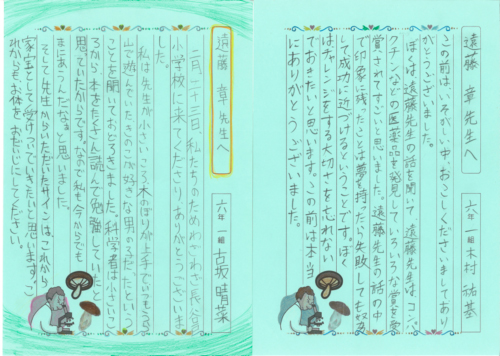 遠藤 章 先生へ
六年 一組 木村 祐基
この前は、いそがしい中、おこしくださいましてあり
がとうございました。
ぼくは遠藤先生の話を聞いて、遠藤先生はコンパ
クチンなどの医薬品を発見していろいろな賞を受
賞されてすごいと思いました。遠藤先生の話の中
で印象に残ったことは夢を持ったら失敗しても努力
して成功に近づけるということです。ぼく
はチャレンジをする大切さを忘れない
でおきたいと思います。この前は本当
にありがとうございました。
遠藤 章 先生へ
六年 一組 古坂 晴菜
二月、二十三日、私たちのためにわざわざ長谷
小学校に来てくださりありがとうございま
した。
私は先生が小さいころ木のぼりが上手でいつも
山で遊んでいたきのこが好きな男の子だったという
ことを聞いておどろきました。科学者は小さいこ
ろから本をたくさん読んで勉強していたと
思っていたからです。なので私も今からでも
まにあうんだなぁと思いました。
そして先生からいただいたサインは、これから
家宝として受けついできたいと思います。こ
れからも、お体を、おだいじにしてください。